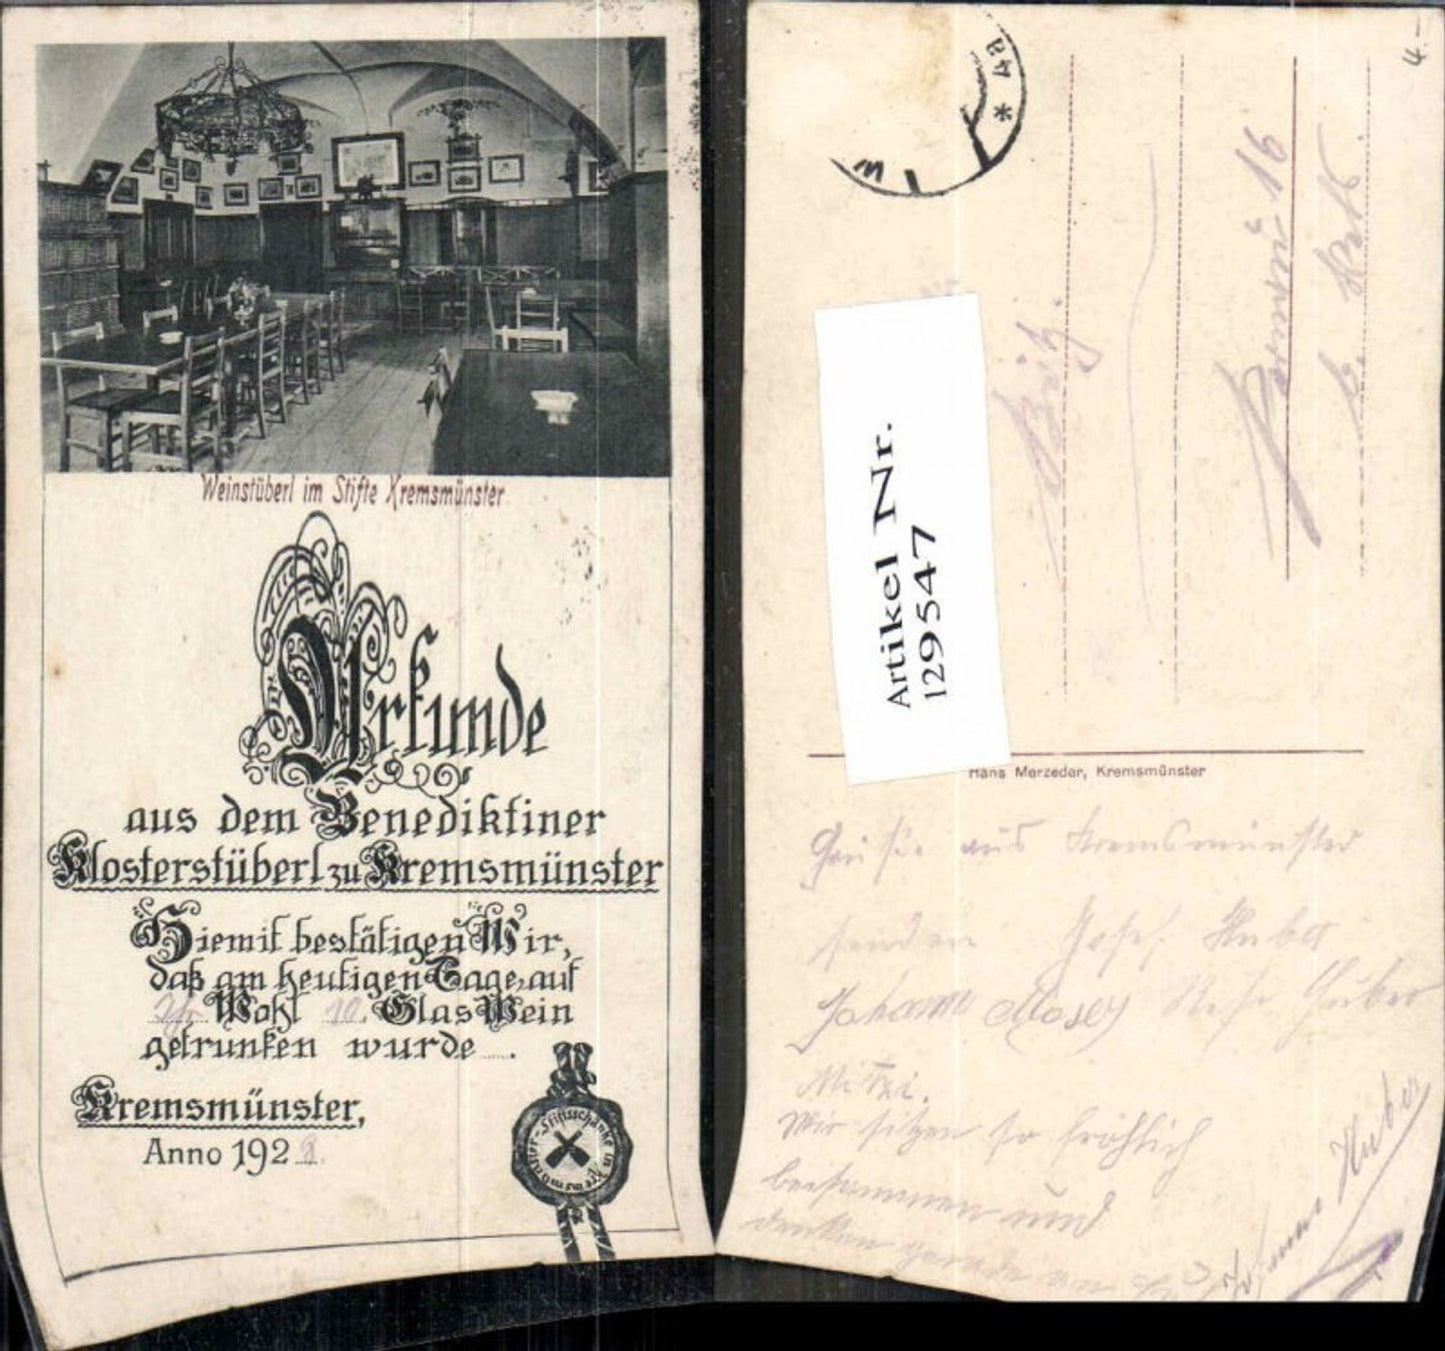 Weinstüberl im Stifte Kremsmünster
Urkunde
aus dem Benediktiner
Klosterstüberl zu Kremsmünster
Hiemit bestätigen Wir,
daß am heutigen Tage, auf
Wohl 10 Glas Wein
getrunken wurde .
Kremsmünster,
Anno 1928.
Stiftsschänke in Kremsmünster
* 4a
W
4.-
Artikel Nr.
129547
Hans Merzeder, Kremsmünster
Grüße aus Kremsmünster
senden Josef Huber
Johann Moser Huber
Mitzi.
Wir sitzen so fröhlich
beisammen und
denken gerade an
Huber